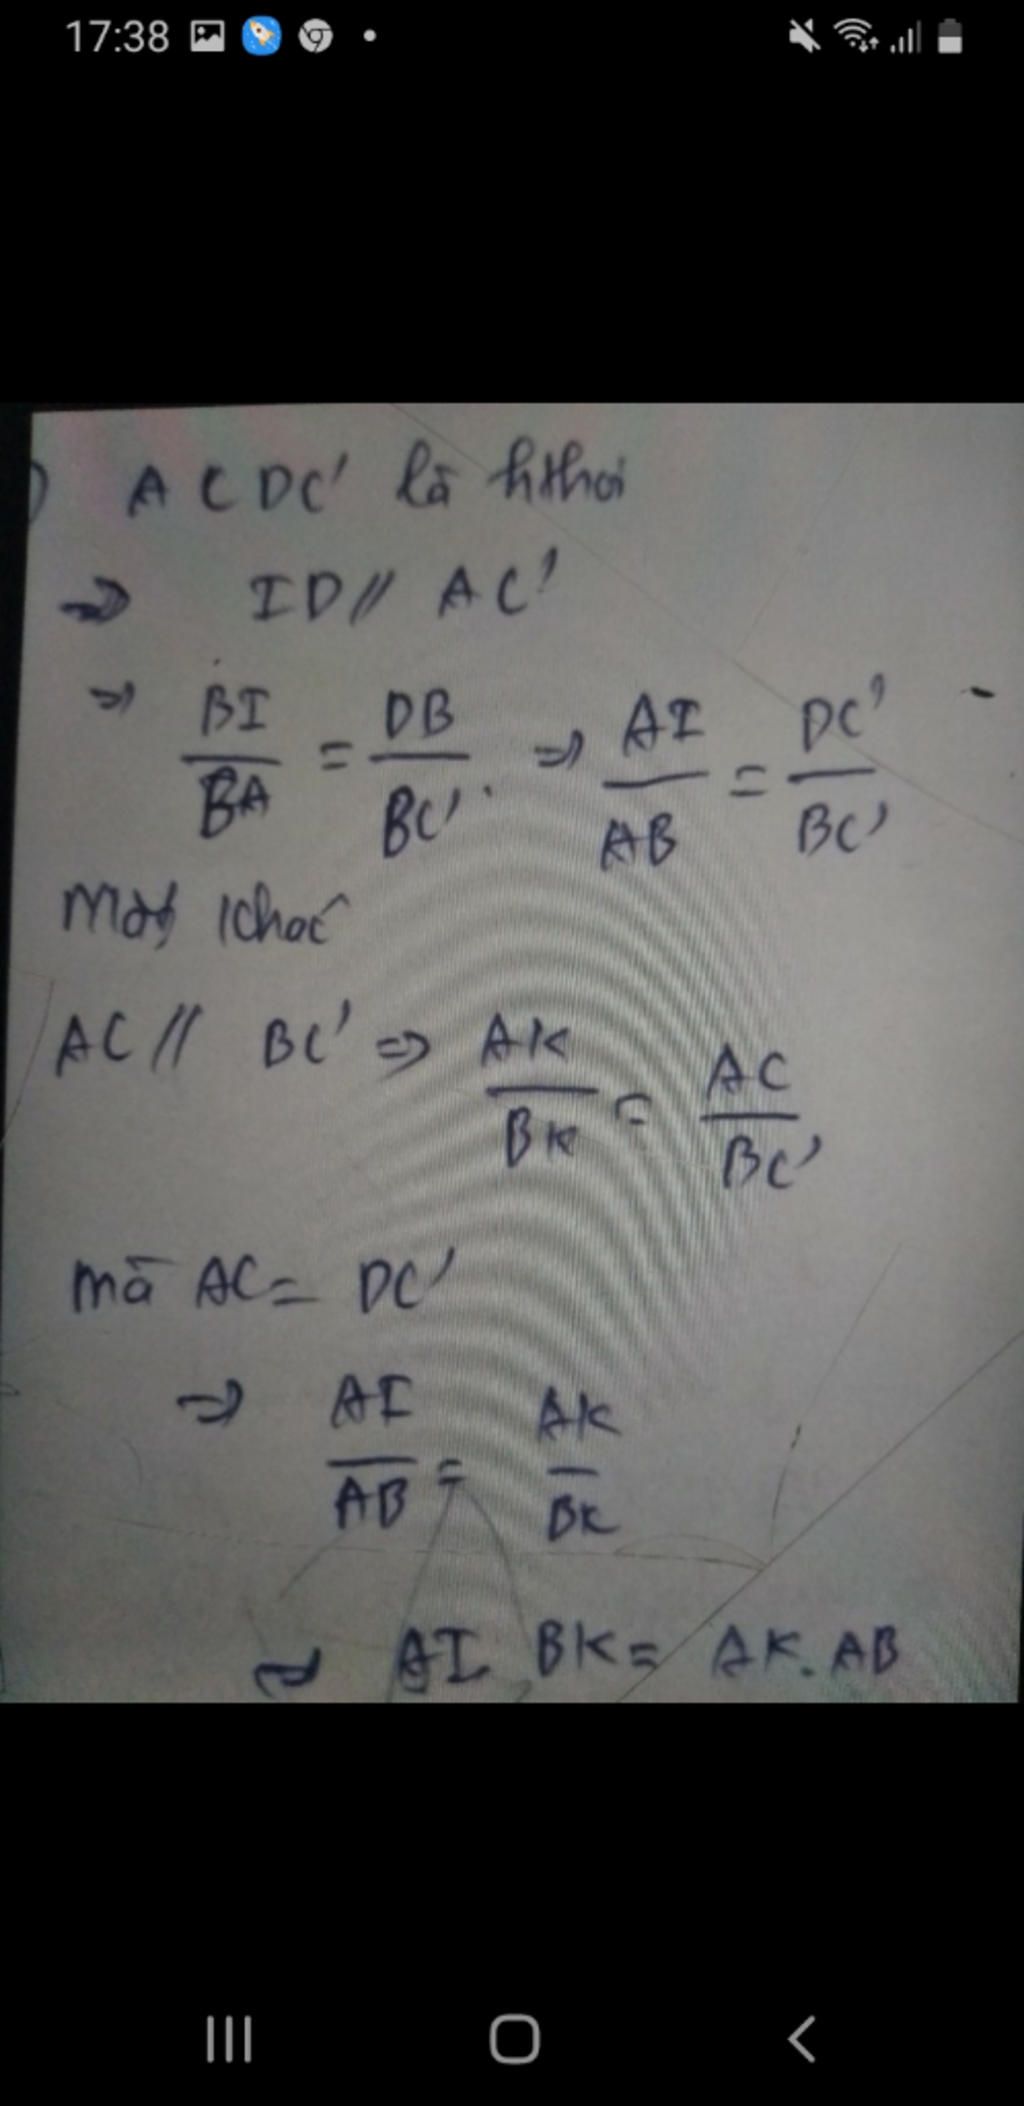 17:38
) ACDC' là hthoi
=> ID // AC'
=> BI/BA = DB/BC'. => AI/AB = DC'/BC'
Mặt khác
AC // BC' => AK/BK = AC/BC'
mà AC = DC'
=> AI/AB = AK/BK
=> AI BK = AK. AB